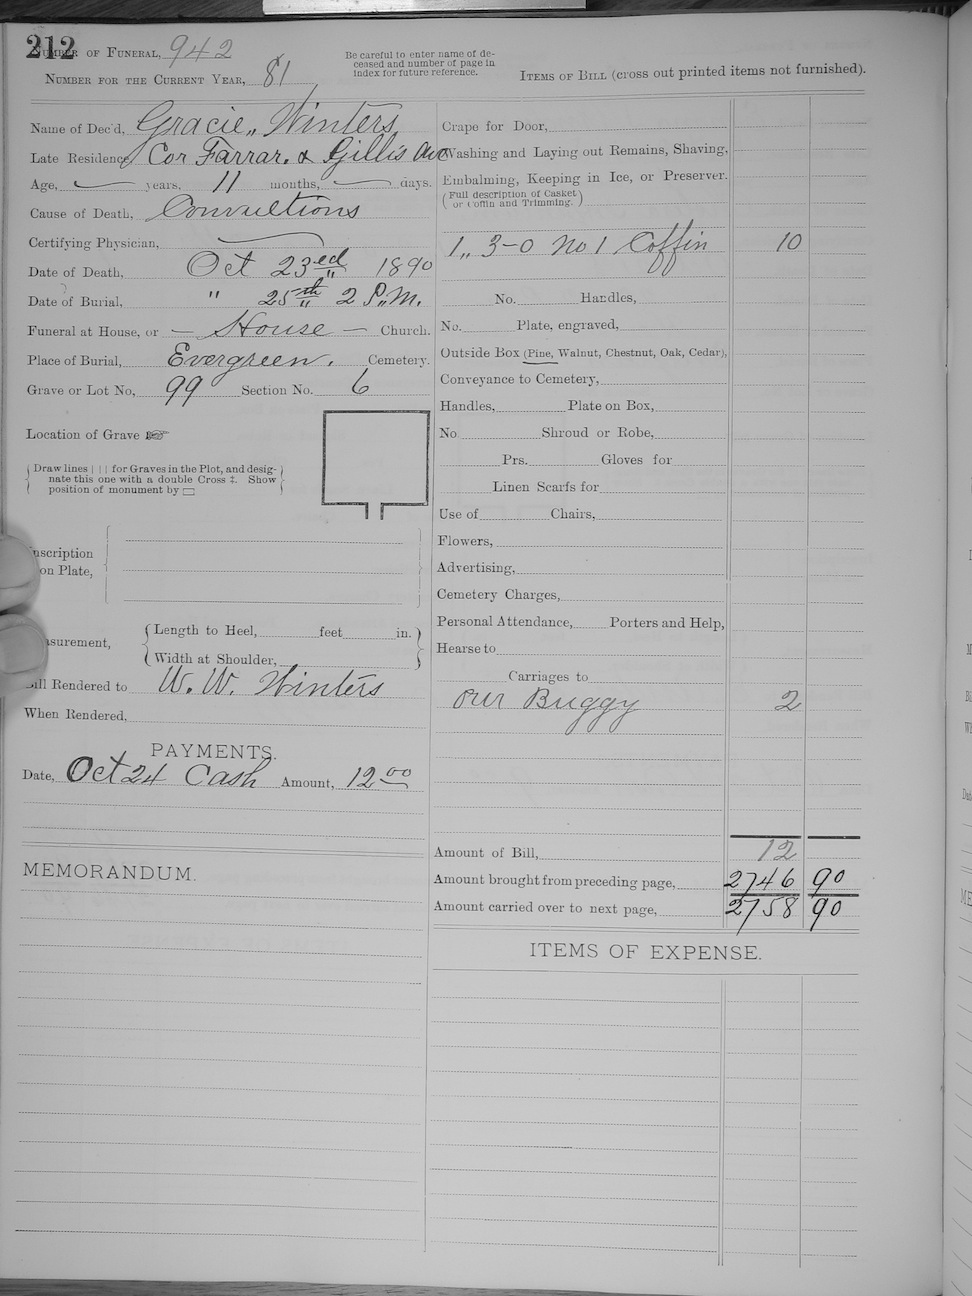 212
Number of Funeral, 942
Number for the Current Year, 81
Be careful to enter name of de-
ceased and number of page in
index for future reference.
Items of Bill (cross out printed items not furnished).
Name of Dec'd, Gracie,, Winters
Late Residence Cor Farrar. & Gillis Ave
Age, years, 11 months, days.
Cause of Death, Convultions
Certifying Physician,
Date of Death, Oct 23ed 1890
Date of Burial, " 25th 2 P.,M.
Funeral at House, or — House — Church.
Place of Burial, Evergreen. Cemetery.
Grave or Lot No, 99 Section No. 6
Location of Grave ☞
Draw lines | | | for Graves in the Plot, and desig-
nate this one with a double Cross ‡. Show
position of monument by ▭
nscription
on Plate,
surement,
Length to Heel, feet in.
Width at Shoulder,
ill Rendered to W. W. Winters
When Rendered,
PAYMENTS.
Date, Oct 24 Cash Amount, 12 00
MEMORANDUM.
Crape for Door,
Washing and Laying out Remains, Shaving,
Embalming, Keeping in Ice, or Preserver.
(Full description of Casket
or Coffin and Trimming.)
1,, 3-0 No 1 Coffin 10
No. Handles,
No. Plate, engraved,
Outside Box (Pine, Walnut, Chestnut, Oak, Cedar),
Conveyance to Cemetery,
Handles, Plate on Box,
No. Shroud or Robe,
Prs. Gloves for
Linen Scarfs for
Use of Chairs,
Flowers,
Advertising,
Cemetery Charges,
Personal Attendance, Porters and Help,
Hearse to
Carriages to
our Buggy 2
Amount of Bill, 12
Amount brought from preceding page, 2746 90
Amount carried over to next page, 2758 90
ITEMS OF EXPENSE.